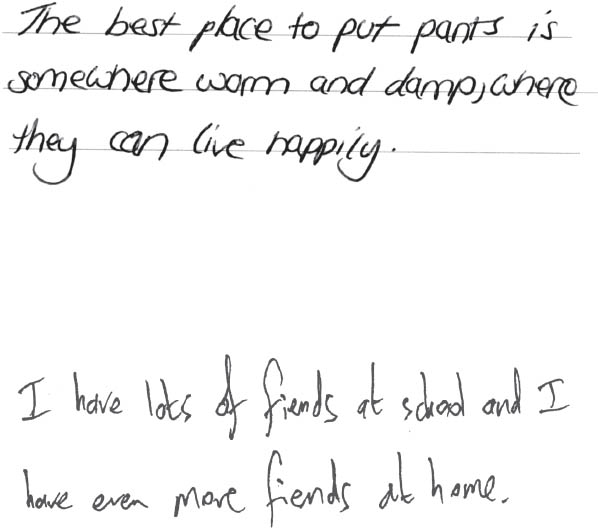 The best place to put pants is
somewhere warm and damp, where
they can live happily.
I have lots of fiends at school and I
have even more fiends at home.